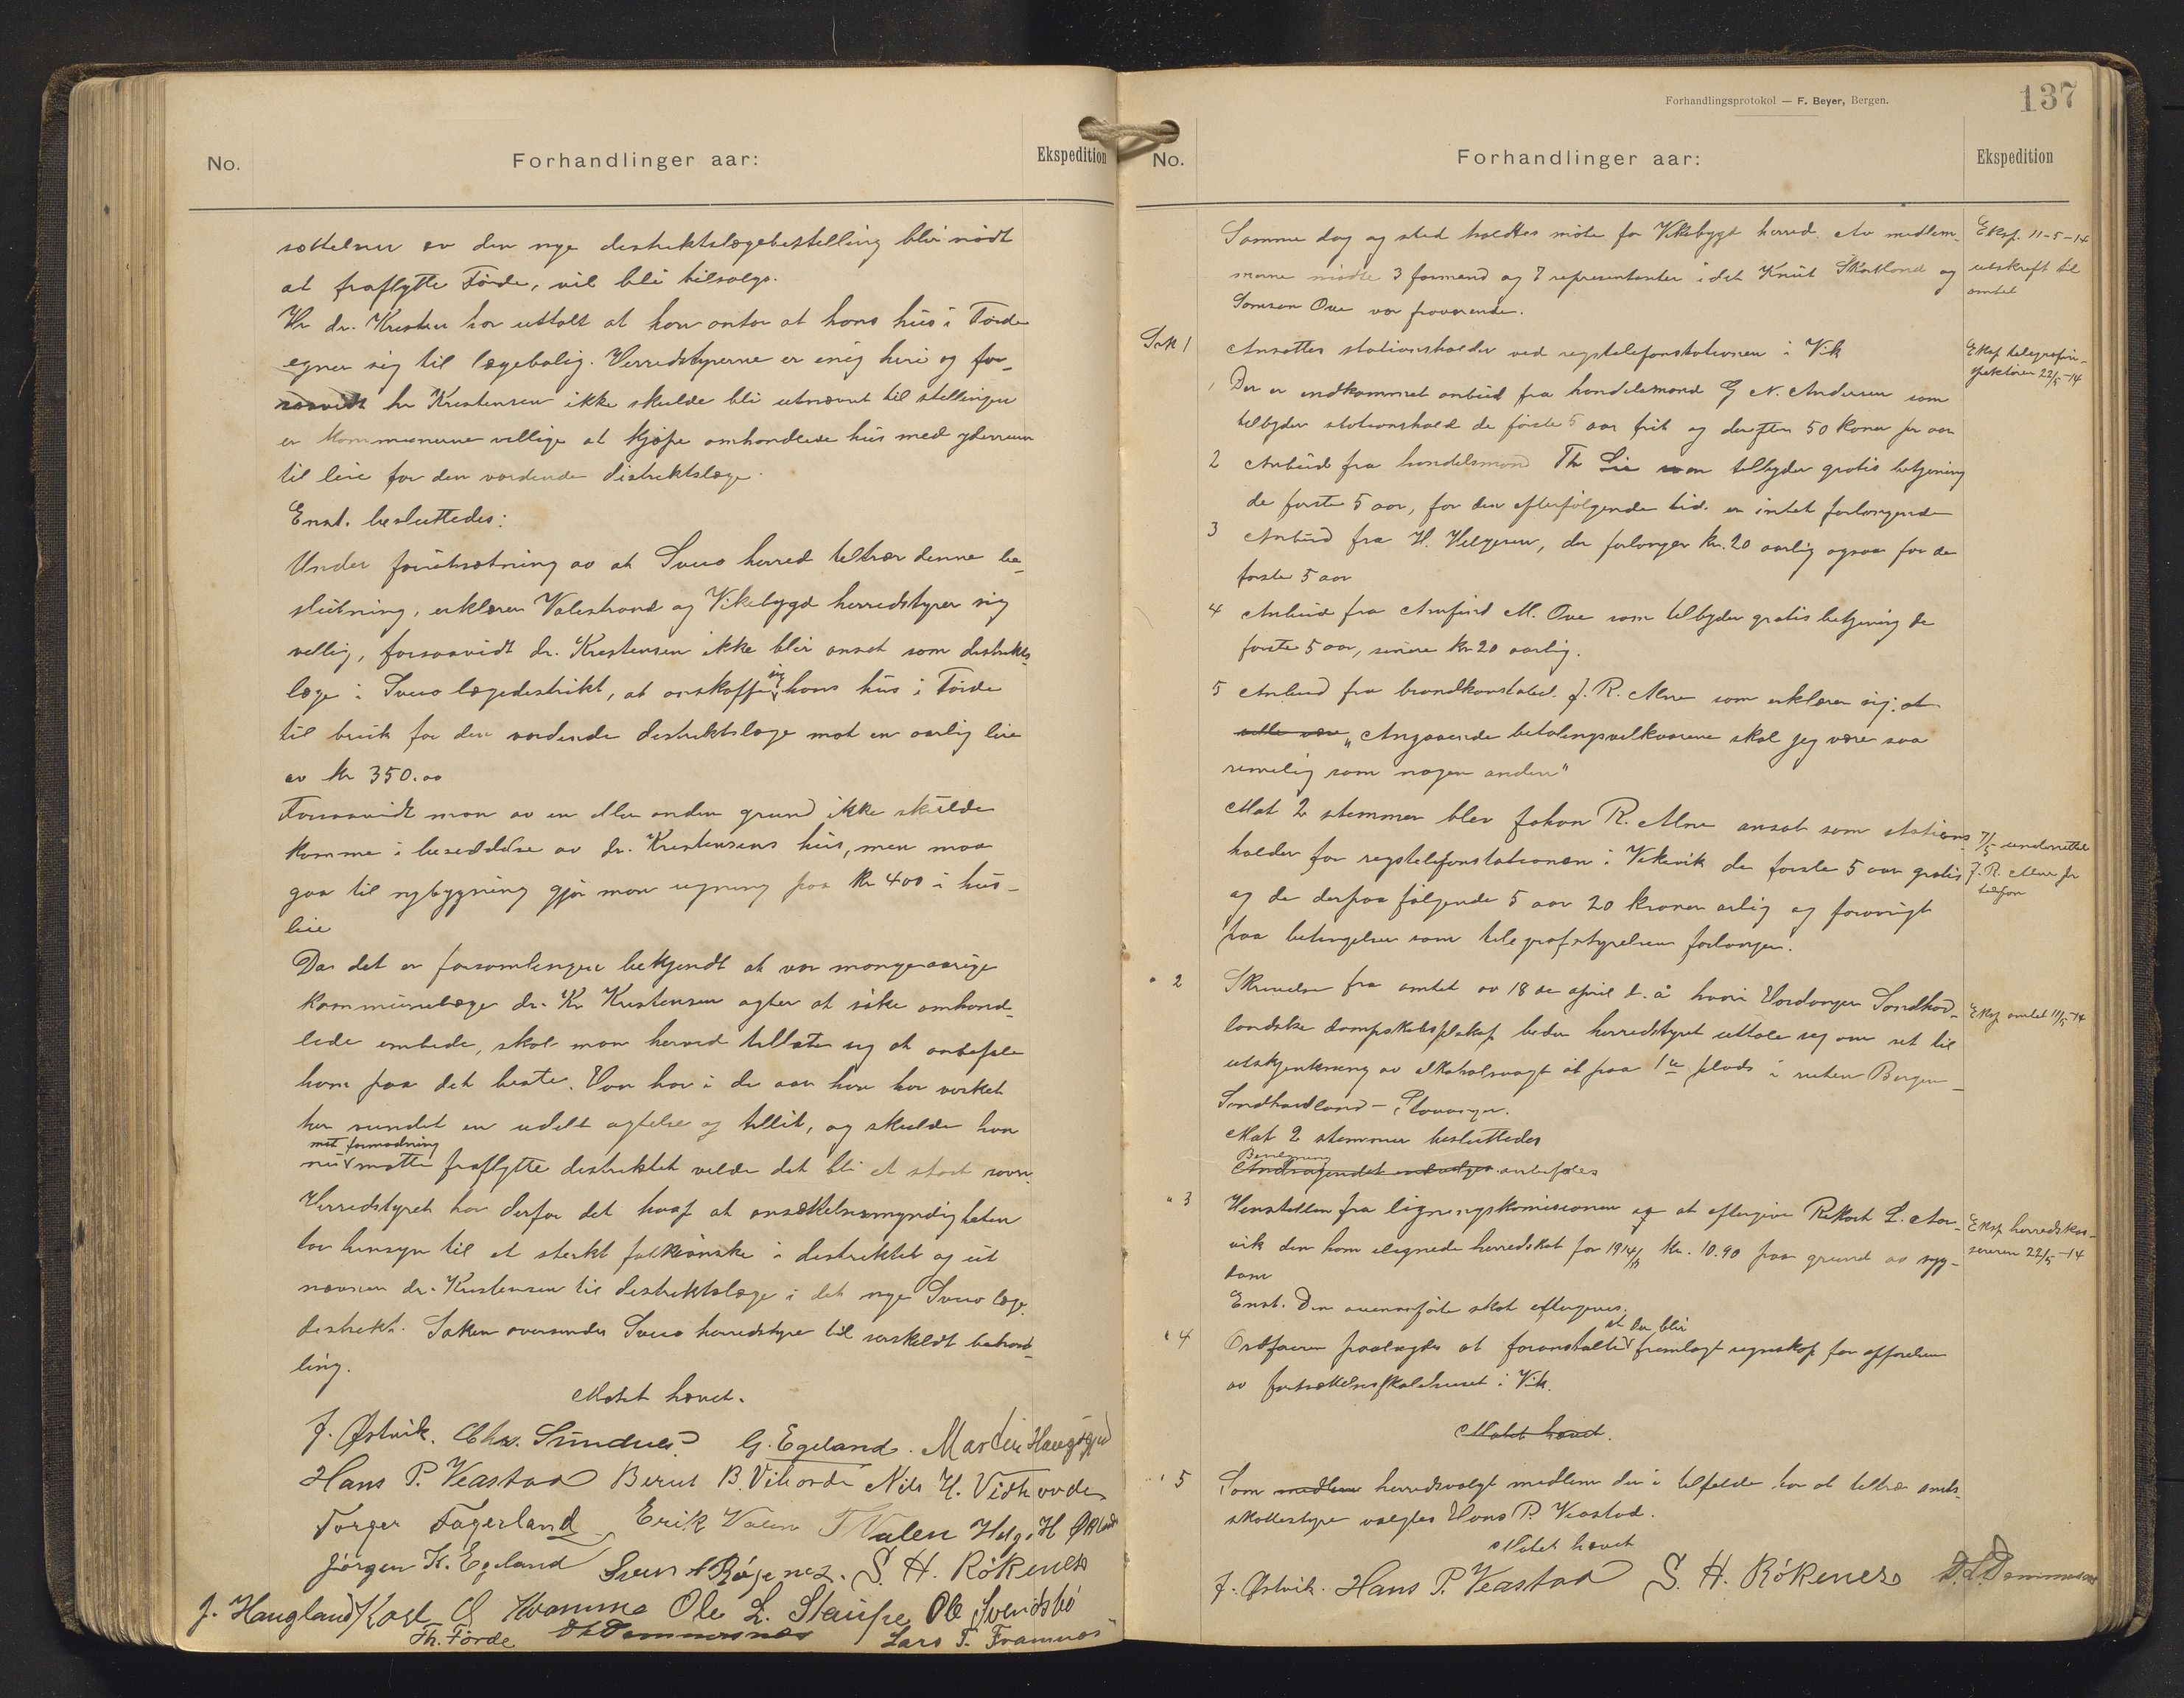 No.
Forhandlinger aar:
Ekspedition
sættelsen av den nye distriktslægebestelling blir nødt
at fraflytte Førde, vil bli tilsalgs.
Hr dr. Kristensen har uttalt at han antar at hans hus i Førde
egner sig til lægebolig. Herredstyrerne er enig heri og for-
saavidt hr Kristensen ikke skulde bli utnævnt til stellingen
er kommunerne villige at kjøpe omhandlede hus med yderrum
til leie for den vordende distriktslæge.
Enst. besluttedes:
Under forutsætning av at Sveio herred tiltrær denne be-
slutning, erklærer Valestrand og Vikebygd herredstyrer sig
villig, forsaavidt dr. Kristensen ikke blir ansat som distrikts-
læge i Sveio lægedistrikt, at anskaffe sig hans hus i Førde
til bruk for den vordende distriktslæge mot en aarlig leie
av kr 350.00
Forsaavidt man av en eller anden grund ikke skulde
komme i besiddelse av dr. Kristensens hus, men maa
gaa til nybygning gjør man regning paa kr 400 i hus-
leie
Da det er forsamlingen bekjendt at vor mangeaarige
kommunelæge dr. Kr Kristensen agter at søke omhand-
lede embede, skal man herved tillate sig at anbefale
ham paa det beste. Han har i de aar han har virket
her vundet en udelt agtelse og tillit, og skulde han
mot formodning
nu maatte fraflytte distriktet vilde det bli et stort savn.
Herredstyret har derfor det haap at ansættelsesmyndigheten
tar hensyn til et sterkt folkeønske i distriktet og ut
nævner dr. Kristensen til distriktslæge i det nye Sveio læge-
distrikt. Saken oversendes Sveio herredstyre til særskildt behand-
ling.
Møtet hævet.
J. Østvik. Chr. Sundnes G. Egeland. Martin Haugsgjerd
Hans P. Veastad Bernt B. Vihovde Nils H. Vihovde
Torger Fagerland Erik Valen T Valen Helge H Økland
Jørgen K. Egeland Sven Røgenes. S. H. Rökenes
J. Haugland Karl O Hvamme Ole L. Staupe Ole Svendsbø
Th. Førde Lars T. Framnes
Forhandlingsprotokol — F. Beyer, Bergen.
137
No.
Forhandlinger aar:
Ekspedition
Samme dag og sted holdtes møte for Vikebygd herred. Av medlem-
Eksp. 11-5-14
merne mødte 3 formænd og 7 representanter idet Knut Skartland og
utskrift til
amtet
Samson Ove var fraværende.
Sak 1
Ansattes stationsholder ved rigstelefonstationen i Vik
Eksp telegrafin-
spektøren 22/5-14
1 Der er indkommet anbud fra handelsmand G N. Andersen som
tilbyder stationshold de første 5 aar frit og derefter 50 kroner pr aar
2 Anbud fra handelsmand Th Lie som tilbyder gratis betjening
de første 5 aar, for den efterfølgende tid er intet forlangende
3 Anbud fra H. Helgesen, der forlanger kr. 20 aarlig ogsaa for de
første 5 aar
4 Anbud fra Arnfind M. Ove som tilbyder gratis betjening de
første 5 aar, senere kr 20 aarlig.
5 Anbud fra brandkonstabel J. R. Alne som erklærer sig: at
ville være „Angaaende betalingsvilkaarene skal jeg være saa
rimelig som nogen anden"
Mot 2 stemmer blev Johan R. Alne ansat som stations-
7/5 underrettet
holder for rigstelefonstationen i Vikevik de første 5 aar gratis
J. R. Alne pr
telefon
og de derpaa følgende 5 aar 20 kroner aarlig og forøvrigt
paa betingelser som telegrafstyrelsen forlanger.
" 2 Skrivelse fra amtet av 18 de april d. å hvori Hardanger Søndhord-
Eksp amtet 11/5-14
landske dampskibsselskap beder herredstyret uttale sig om ret til
utskjenkning av alkoholsvagt øl paa 1ste plads i ruten Bergen-
Søndhordland - Stavanger.
Mot 2 stemmer besluttedes
Bevilgning
Andragendet anbefales
" 3 Henstillen fra ligningskomisionen om at eftergive Rikart L. Aar-
Eksp herredskas-
vik den ham ilignede herredskat for 1914/15 kr. 10.90 paa grund av syg-
sereren 22/5-14
dom
Enst. Den ovenanførte skat eftergives.
at der blir
" 4 Ordføreren paalægges at foranstalte fremlagt regnskap for opførelsen
av fortsættelsesskolehuset i Vik.
Møtet hævet.
" 5 Som medlem herredsvalgt medlem der i tilfælde har at tiltræ amts-
skattestyre valgtes Hans P. Veastad.
Møtet hævet
J. Østvik. Hans P. Veastad S. H. Rökenes